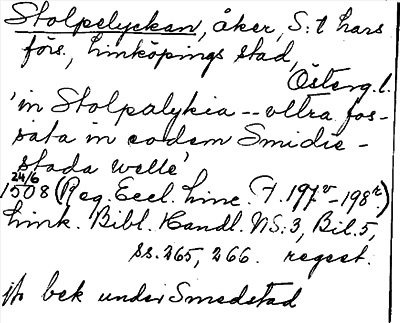 Stolpelyckan, åker, S:t Lars
förs., Linköpings stad,
Österg. l.
'in Stolpalykia -- vltra fos-
sata in eodem Smidie-
stada welle'
24/6
1508 (Reg. Eccl. Linc. F. 197v-198r)
Link. Bibl. Handl. NS:3, Bil. 5,
ss. 265, 266. regest.
bek under Smedstad